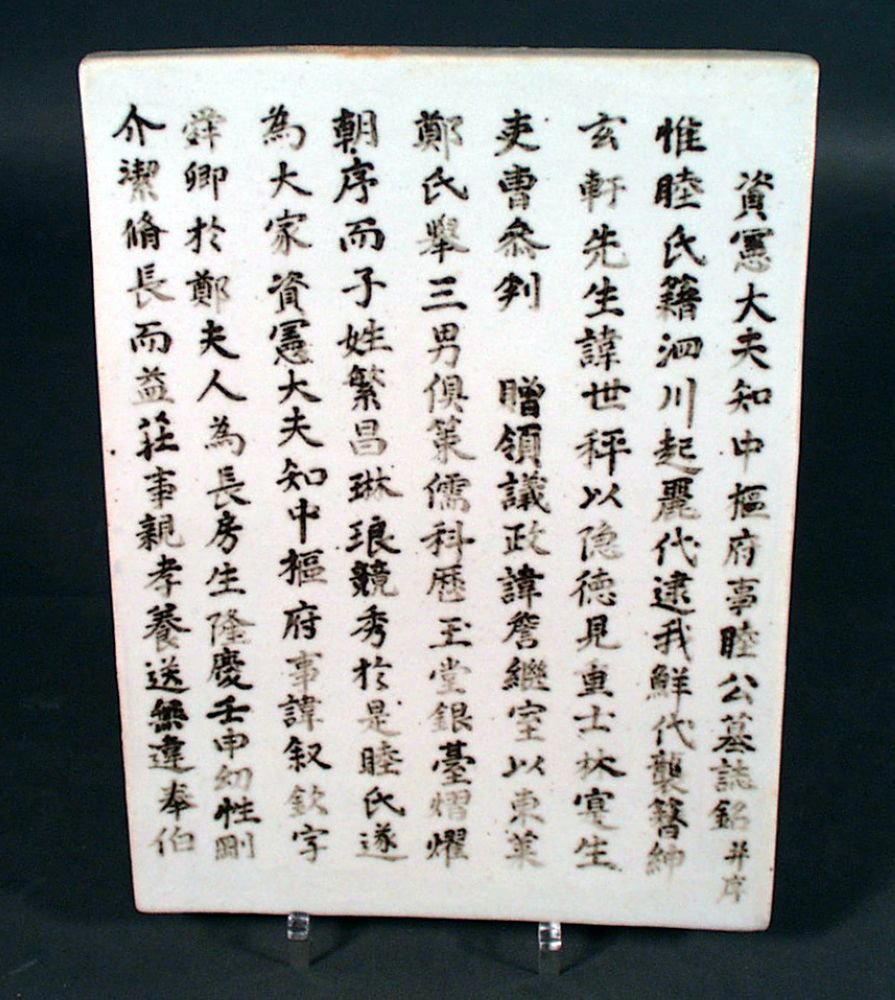 資憲大夫知中樞府事睦公墓誌銘 并序
惟睦氏籍泗川起麗代逮我鮮代襲簪紳
玄軒先生諱世秤以隠德見重士林寔生
吏曹叅判 贈領議政諱詹継室以東萊
鄭氏舉三男俱策儒科歴玉堂銀臺熠燿
朝序而子姓繁昌琳琅競秀於是睦氏遂
為大家資憲大夫知中樞府事諱叙欽字
舜卿於鄭夫人為長房生隆慶壬申幼性剛
介潔脩長而益莊事親孝養送無違奉伯